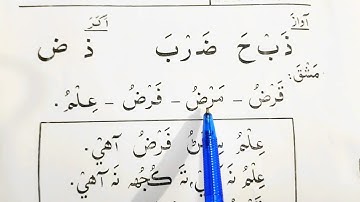 آواز اکر
ذَبْحَ ضَرْبَ ذ ض
مَشق: قَرْضُ - مَرْضُ - فَرْضُ - عِلْمُ.
عِلْمُ فَرْضُ آهيْ.
عِلْمُ نَه تَه ڪُجُهه نَه آهيْ.